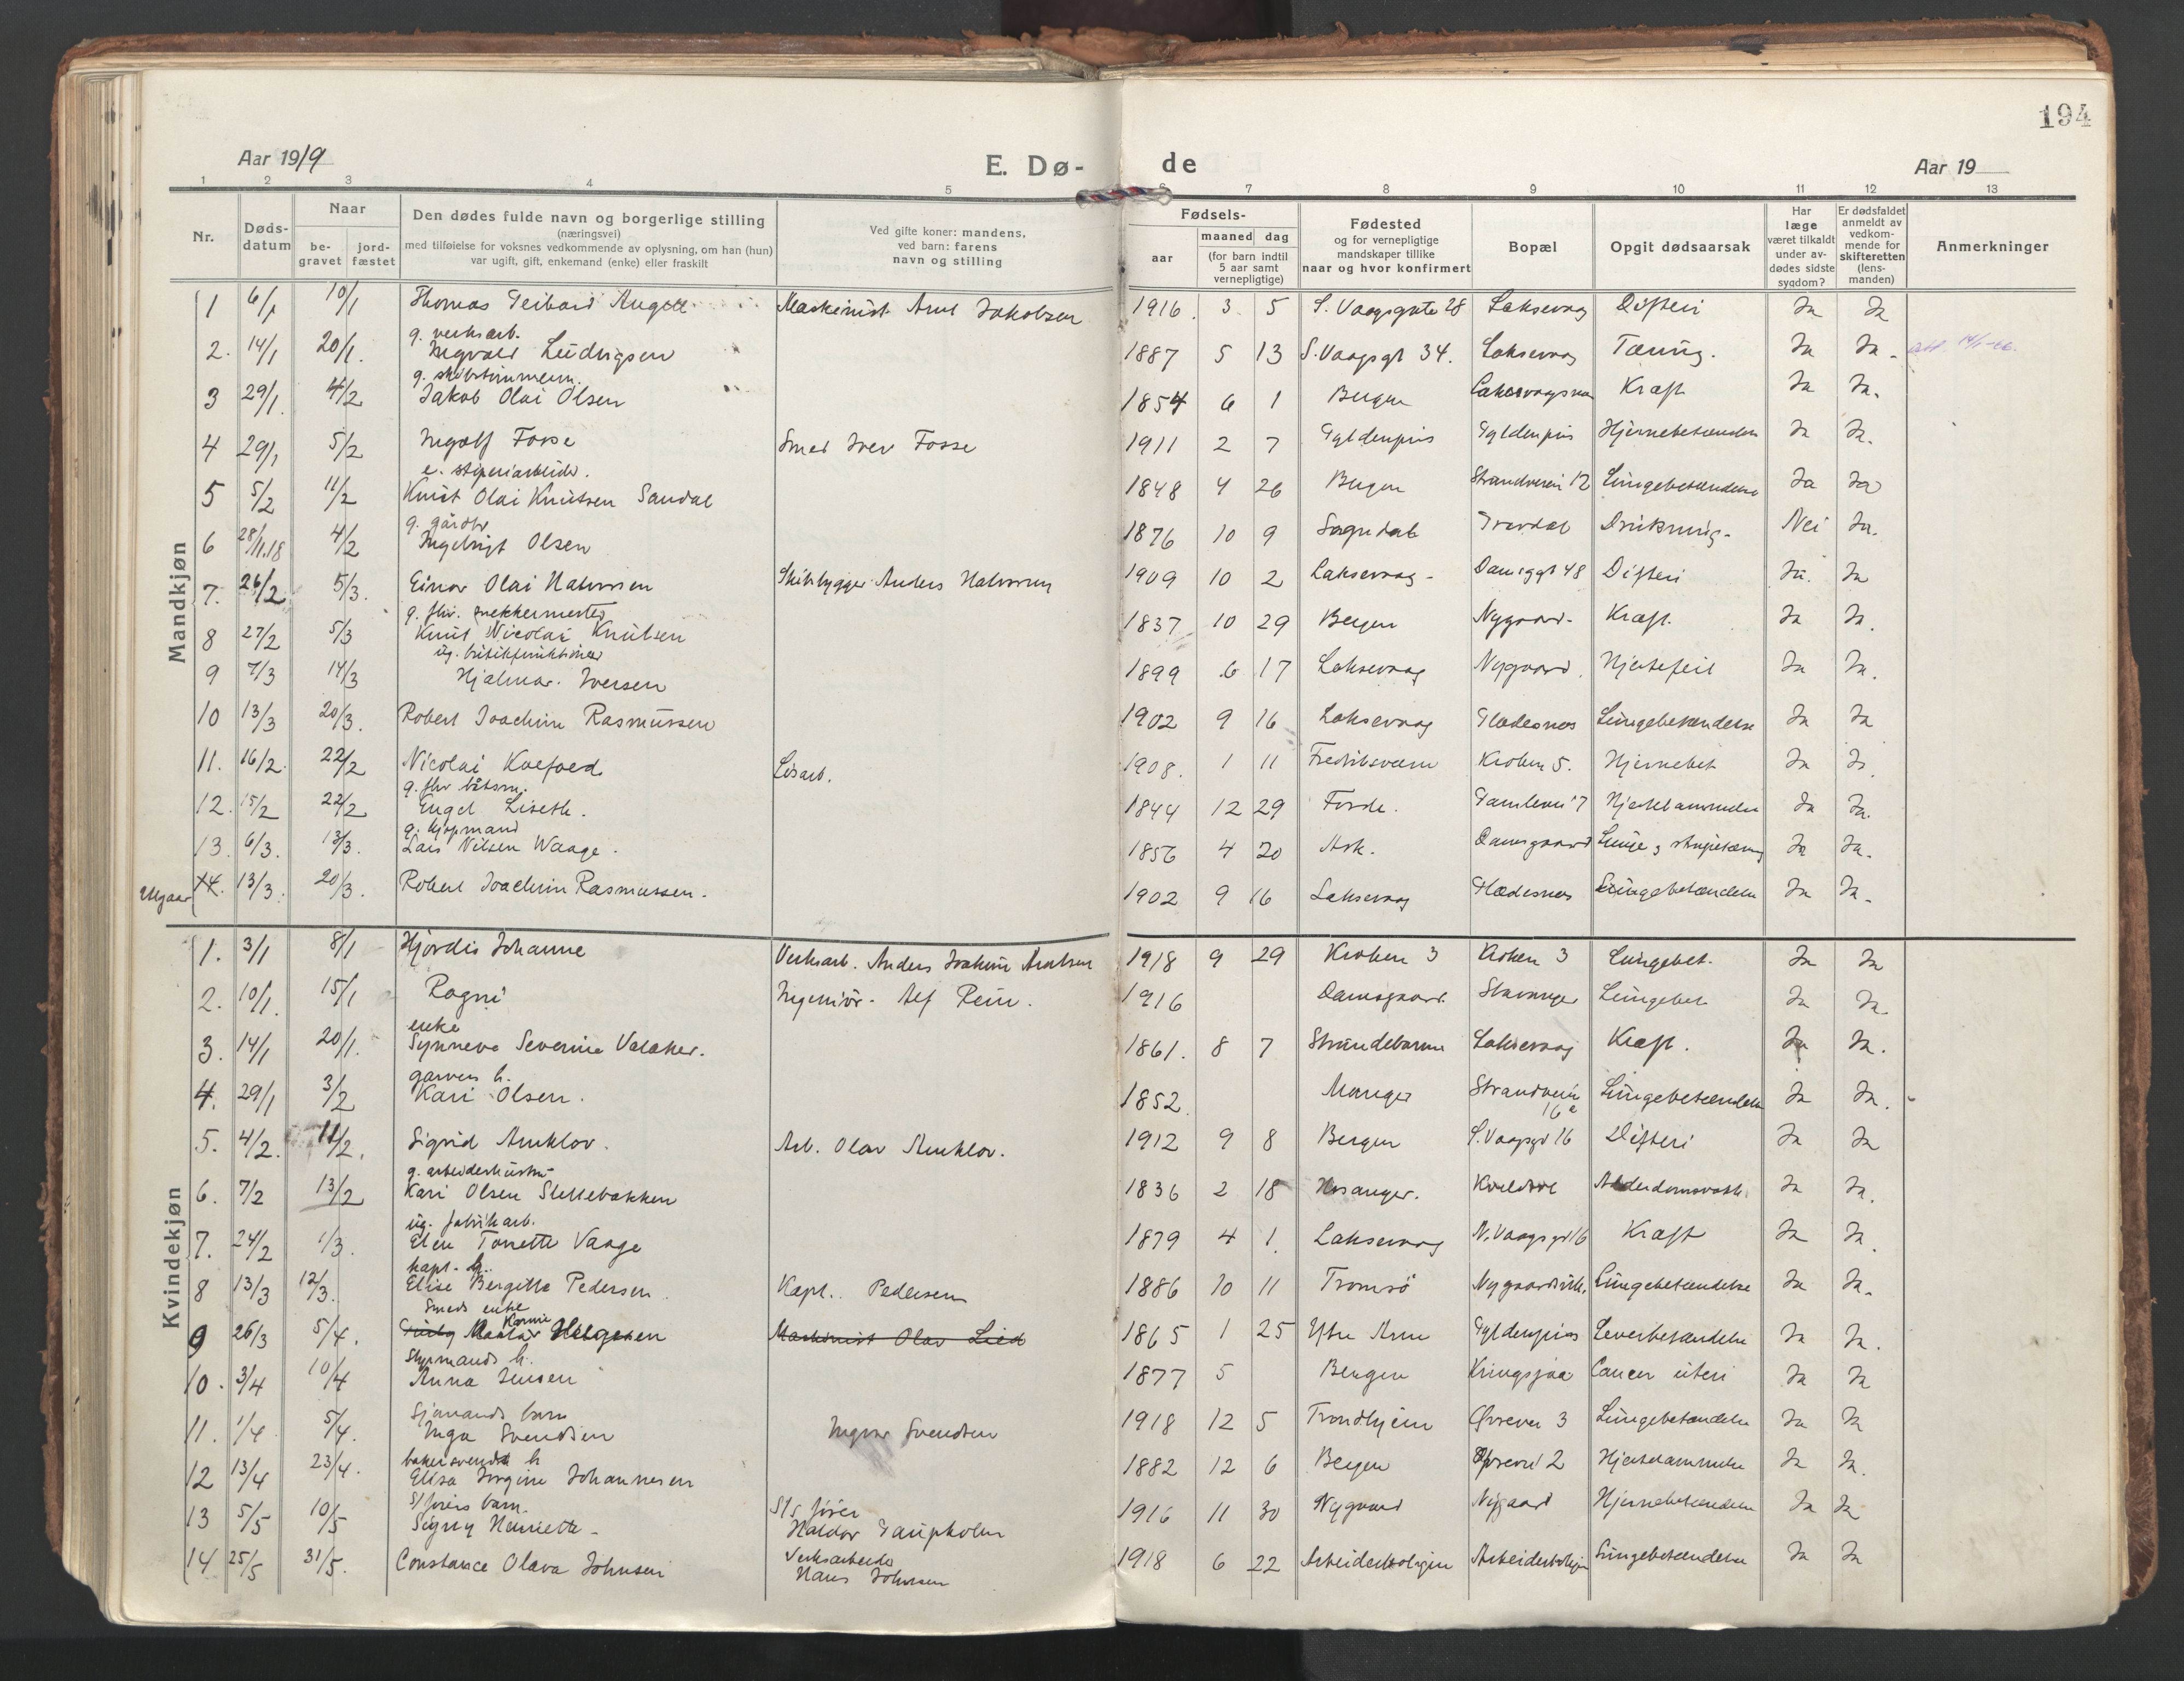 194
Aar 1919 E. Dø- de Aar 19
1 2 3 4 5 6 7 8 9 10 11 12 13
Nr. Døds-datum Naar be-gravet jord-fæstet Den dødes fulde navn og borgerlige stilling (næringsvei) med tilføielse for voksnes vedkommende av oplysning, om han (hun) var ugift, gift, enkemand (enke) eller fraskilt Ved gifte koner: mandens, ved barn: farens navn og stilling Fødsels- aar maaned dag (for barn indtil 5 aar samt vernepligtige) Fødested og for vernepligtige mandskaper tillike naar og hvor konfirmert Bopæl Opgit dødsaarsak Har læge været tilkaldt under av-dødes sidste sygdom? Er dødsfaldet anmeldt av vedkom-mende for skifteretten (lens-manden) Anmerkninger
Mandkjøn
1 6/1 10/1 Thomas Maskinist Arnt Jakobsen 1916. 3 5 S. Vaagsgate 28 Laksevaag Difteri Ja Ja
g. verksarb.
2. 14/1 20/1. Ingvald Ludvigsen 1887 5 13 S. Vaagsgt 34. Laksevaag Tæring. Ja Ja.
g. skibstømmerm.
3 29/1. 4/2 Jakob Olai Olsen 1854 6 1 Bergen Kræft Ja Ja.
4 29/1 5/2 Ingolf Fosse Smed Iver Fosse 1911 2 7 Gyldenpris Gyldenpris Hjernebetænden Ja Ja.
e. støperiarbeider.
5 5/2 11/2 Knut Olai Knutsen Sandal 1848 4 26 Bergen Strandveien 12 Lungebetændelse Ja Ja
g. gårdbr
6 28/11.18 4/2 Ingebrigt Olsen 1876 10 9 Sogndal Gravdal Drukning. Nei Ja.
7. 26/2 5/3. Einar Olai Halvorsen Skibsbygger Anders Halvorsen 1909 10 2 Laksevaag Damsgt 48 Difteri Ja. Ja
g. fhv. snekkermester
8 27/2 5/3 Knut Nicolai Knutsen 1837 10 29 Bergen Nygaard. Kræft. Ja Ja.
ug.
9 7/3 14/3 Hjalmar Iversen 1899 6 17 Laksevaag Nygaard. Hjertefeil Ja Ja.
10 13/3 20/3. Robert Joachim Rasmussen 1902 9 16 Laksevaag Flædesnes Lungebetændelse Ja Ja
11. 16/2. 22/2 Nicolai Koefoed Løsarb. 1908. 1 11 Fredriksværn Kroken 5. Hjernebet Ja Ja.
g. fhv båtsm.
12. 15/2 22/2 Engel Liseth. 1844 12 29 Førde. Gamlevei 7 Hjertelammelse Ja Ja.
g. kjøpmand
13. 6/3. 13/3. Lars Nilsen Waage. 1856 4 20 Ask. Damsgaard Ja Ja.
Utgaar 14. 13/3. 20/3. Robert Joachim Rasmussen. 1902 9 16 Laksevaag Flædesnes Lungebetændelse Ja Ja.
Kvindekjøn
1. 3/1 8/1 Hjørdis Johanne Verksarb. Anders Joakim Arntsen 1918 9 29 Kroken 3 Kroken 3 Lungebet. Ja Ja
2. 10/1. 15/1 Ragni Ingeniør. Alf Rein. 1916 Damsgaard. Stavanger Lungebet Ja Ja.
enke
3. 14/1 20/1. Synneve Severine Valaker. 1861. 8 7 Strandebarm Laksevaag Kræft. Ja Ja.
garvers h.
4. 29/1 3/2 Kari Olsen. 1852. Manger Strandveien 16e Lungebetændelse Ja Ja.
5. 4/2. 11/2. Sigrid Anuklov. Arb. Olav Anuklov. 1912 9 8 Bergen S. Vaagsgt 16 Difteri Ja Ja
g. arbeiderhustru
6. 7/2 13/2 Kari Olsen Slettebakken 1836 2 18 Hosanger. Alderdomssvakh. Ja Ja.
ug. fabrikarb.
7. 24/2 1/3. Elen Tonette Vaage 1879 4 1. Laksevaag N. Vaagsgt 16 Kræft Ja Ja.
kapt. h.
8 13/3 12/3. Elise Bergitte Pedersen. Kapt. Pedersen 1886 10 11 Tromsø Lungebetændelse Ja Ja.
Smeds enke
9 26/3 5/4. Helgesen Maskinist Olav Lied 1865 1 25 Ytre Arne Gyldenpris Leverbetændelse Ja Ja.
Styrmands h.
10. 3/4 10/4 Anna Jensen 1877 5 Bergen Kringsjaa Cancer uteri Ja Ja
Sjømands barn
11. 1/4 5/4. Inga Svendsen Ingvar Svendsen 1918 12 5 Trondhjem Øvrevei 3 Lungebetændelse Ja Ja
bakersvends h
12 13/4 23/4. Elisa Jørgine Johannesen 1882 12 6 Bergen Øvrevei 2 Hjertelammelse Ja Ja.
S/førers barn.
13 5/5 10/5 Signy Henriette S/S fører Haldor Gaupholm 1916 11 30 Nygaard Nygaard Hjernebetændelse Ja Ja
14 25/5 31/5. Constance Olava Johnsen Verksarbeider Hans Johnsen 1918 6 22 Arbeiderboligen Arbeiderboligen Lungebetændelse Ja Ja